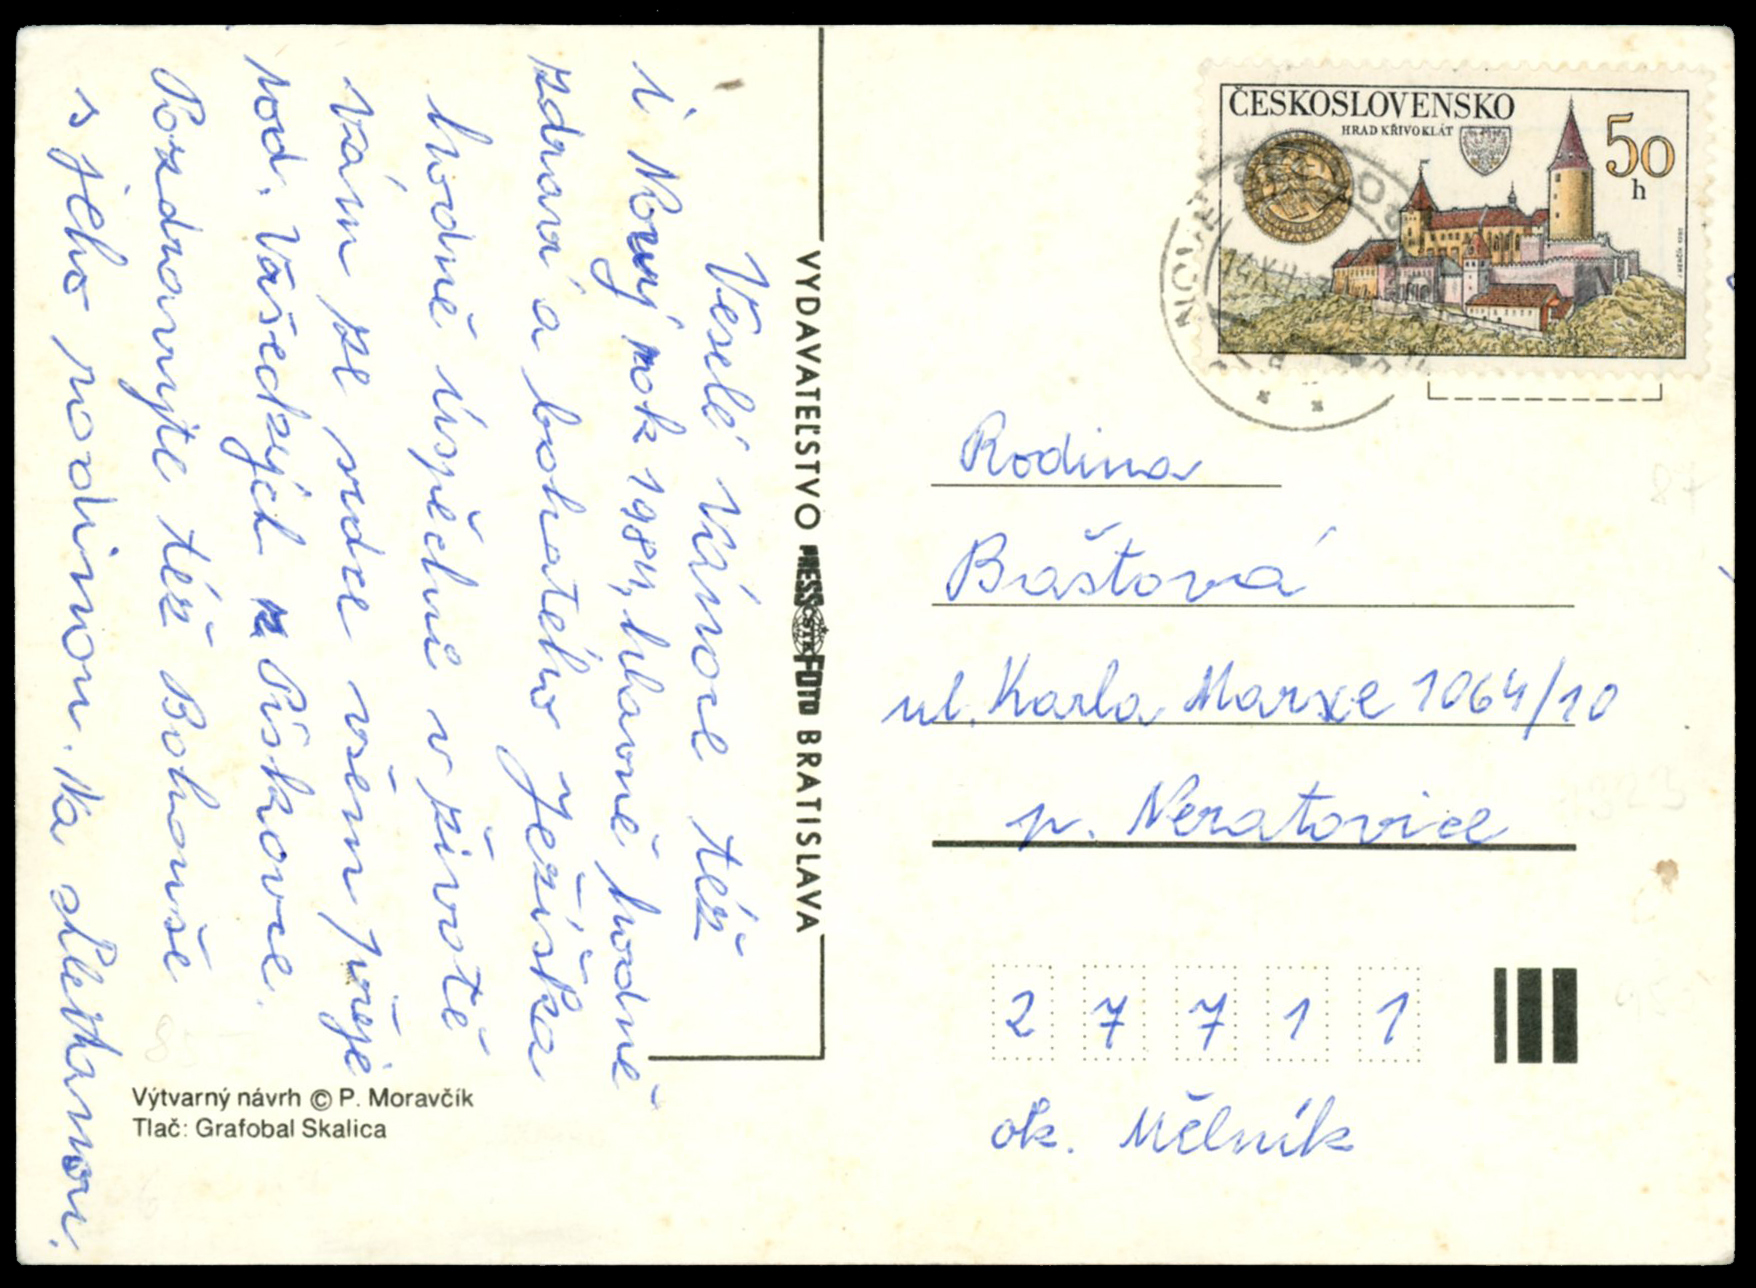 Veselé Vánoce též
i Nový rok 1984, hlavně hodně
zdraví a bohatého Ježíška
hodně úspěchů v životě
Vám ze srdce všem přeje
rod. Vašeckých z Pískovce.
Pozdravujte též Bohouše
s jeho rodinou.
VYDAVATEĽSTVO PRESSFOTO BRATISLAVA
ČSTK
Výtvarný návrh © P. Moravčík
Tlač: Grafobal Skalica
ČESKOSLOVENSKO
HRAD KŘIVOKLÁT
50
h
Rodina
Baštová
ul. Karla Marxe 1064/10
p. Neratovice
27711
ok. Mělník